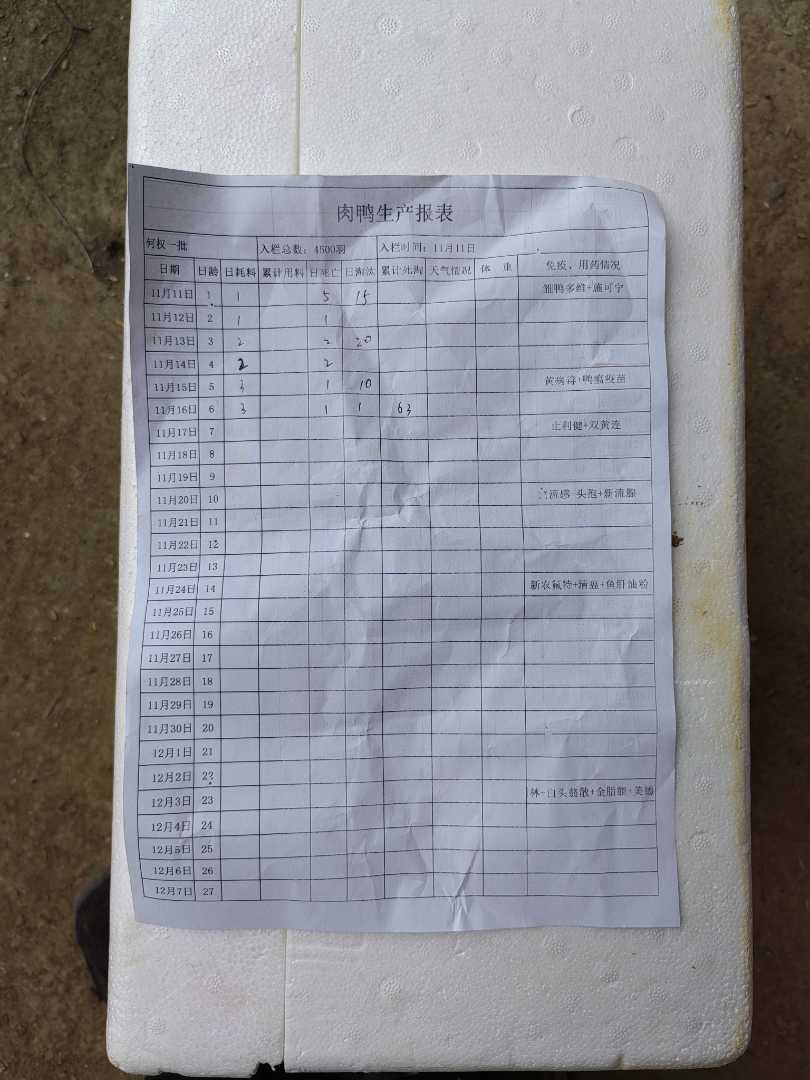 肉鸭生产报表
何权一批 入栏总数：4500羽 入栏时间：11月11日
日期 日龄 日耗料 累计用料 日死亡 日淘汰 累计死淘 天气情况 体 重 免疫、用药情况
11月11日 1 1 5 15 雏鸭多维+施可宁
11月12日 2 1 1
11月13日 3 2 2 20
11月14日 4 2 2
11月15日 5 3 1 10 黄病毒+鸭瘟疫苗
11月16日 6 3 1 1 63
11月17日 7 止利健+双黄连
11月18日 8
11月19日 9
11月20日 10 流感 头孢+新流腺
11月21日 11
11月22日 12
11月23日 13
11月24日 14 新农氟特+清瘟+鱼肝油粉
11月25日 15
11月26日 16
11月27日 17
11月28日 18
11月29日 19
11月30日 20
12月1日 21
12月2日 22
12月3日 23 林+白头翁散+金脂能+美德
12月4日 24
12月5日 25
12月6日 26
12月7日 27